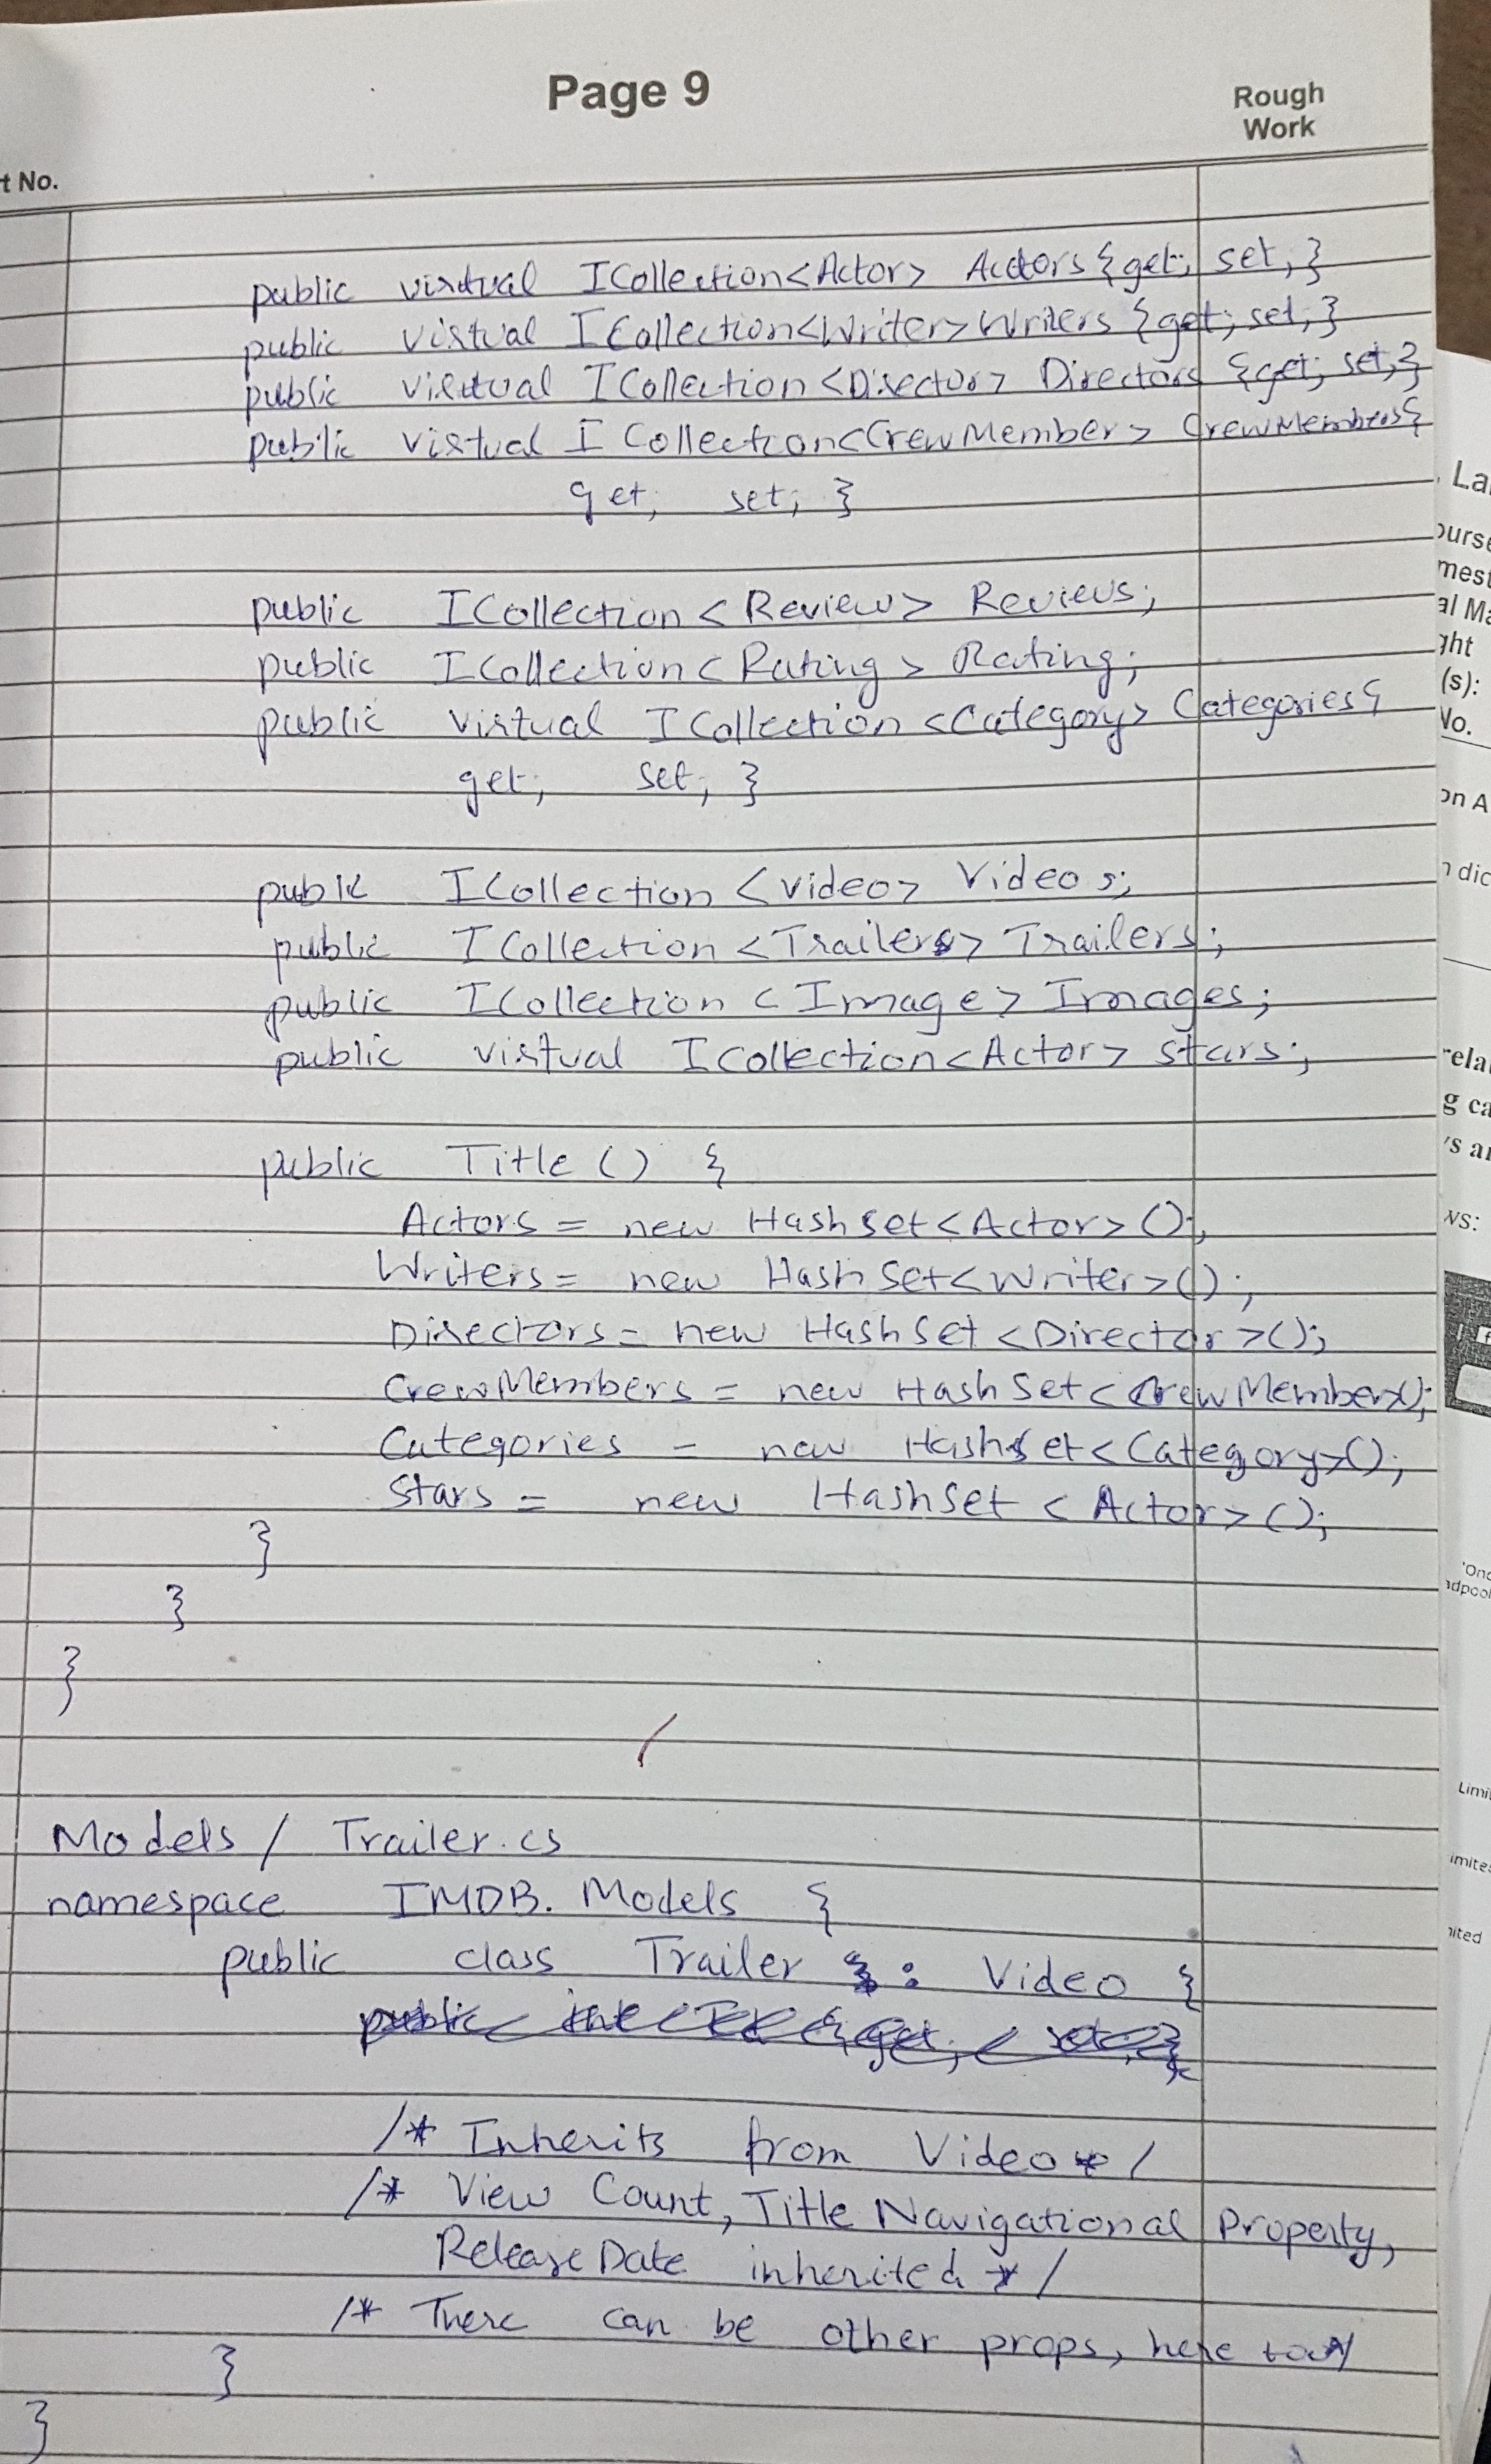 Page 9
Rough
Work
t No.
public virtual ICollection<Actor> Actors {get; set;}
public virtual ICollection<Writer> Writers {get; set;}
public virtual ICollection<Director> Directors {get; set;}
public virtual ICollection<CrewMember> CrewMembers{
get; set; }
public ICollection<Review> Reviews;
public ICollection<Rating> Rating;
public virtual ICollection<Category> Categories{
get; set; }
public ICollection <Video> Videos;
public ICollection <Trailers> Trailers;
public ICollection <Image> Images;
public virtual ICollection<Actor> Stars;
public Title () {
Actors = new HashSet<Actor>();
Writers = new HashSet<Writer>();
Directors = new HashSet<Director>();
CrewMembers = new HashSet<CrewMember>();
Categories = new HashSet<Category>();
Stars = new HashSet<Actor>();
}
}
}
Models / Trailer.cs
namespace IMDB.Models {
public class Trailer : Video {
/* Inherits from Video */
/* View Count, Title Navigational Property,
Release Date inherited */
/* There can be other props, here too */
}
}
La
ourse
mest
al Ma
ght
(s):
No.
on A
n dic
rela
g ca
's an
ws:
'Onc
adpool
Limi
imite
nited